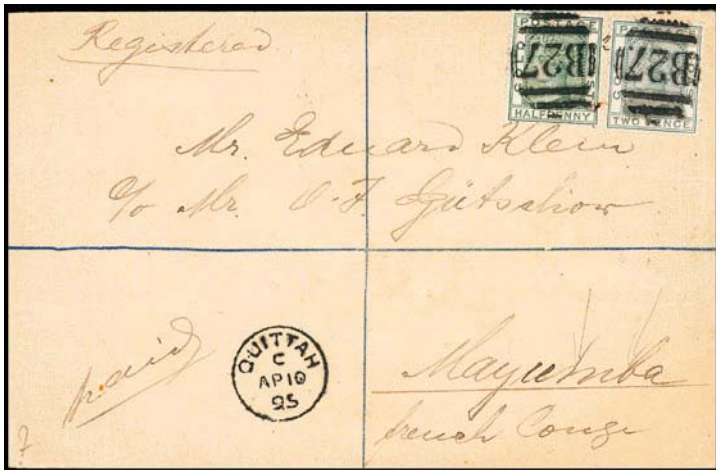 Registered
POSTAGE
HALFPENNY
B27
TWO PENCE
B27
Mr. Eduard Klein
c/o Mr. O. F. Gütschow
paid
QUITTAH
C
AP 10
95
Mayumba
french Congo
7